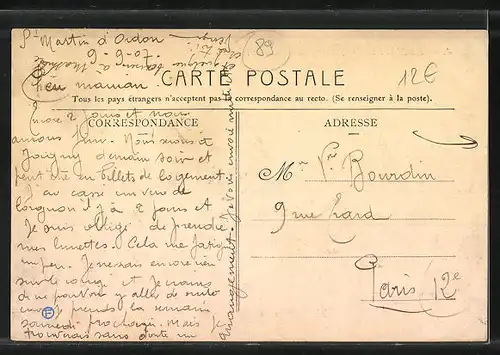 St Martin d'Ordon
9-9-07.
89
12€
CARTE POSTALE
Tous les pays étrangers n'acceptent pas la correspondance au recto. (Se renseigner à la poste).
CORRESPONDANCE
ADRESSE
maman
Encore 2 jours et nous
aurons fini. Nous serons à
Joigny demain soir et
peut être au billets de logement.
J'ai cassé un verre de
lorgnon il y a 2 jours et
je suis obligé de prendre
mes lunettes. Cela me fatigue
un peu. Je ne sais encore rien
sur le congé et je crains
de ne pouvoir y aller de suite
prends la semaine
samedi prochain. Mais je
trouverais sans doute un
arrangement. Je vous
Mr Vr Bourdin
9 rue
Paris 12e